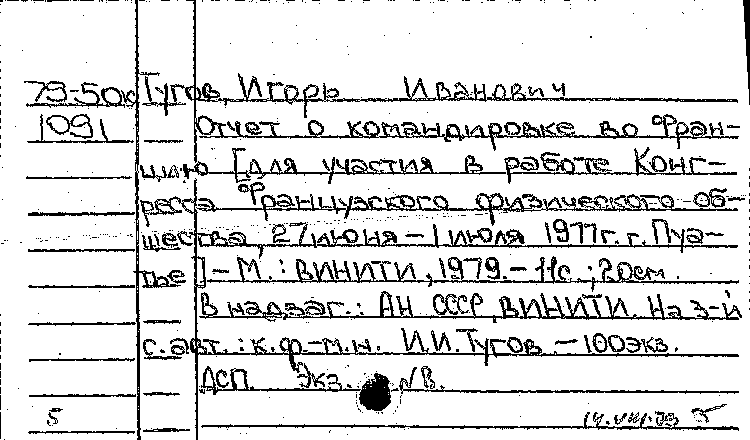 79-50к Тугов, Игорь Иванович
1091 Отчет о командировке во Фран-
цию [для участия в работе Конг-
ресса Французского физического об-
щества, 27 июня – 1 июля 1977г. г. Пуа-
тье] – М.: ВИНИТИ, 1979. – 11с.; 20см.
В надзаг.: АН СССР, ВИНИТИ. На 3-й
с. авт.: к.ф.-м.н. И.И. Тугов. – 100экз.
ДСП. Экз. №
5